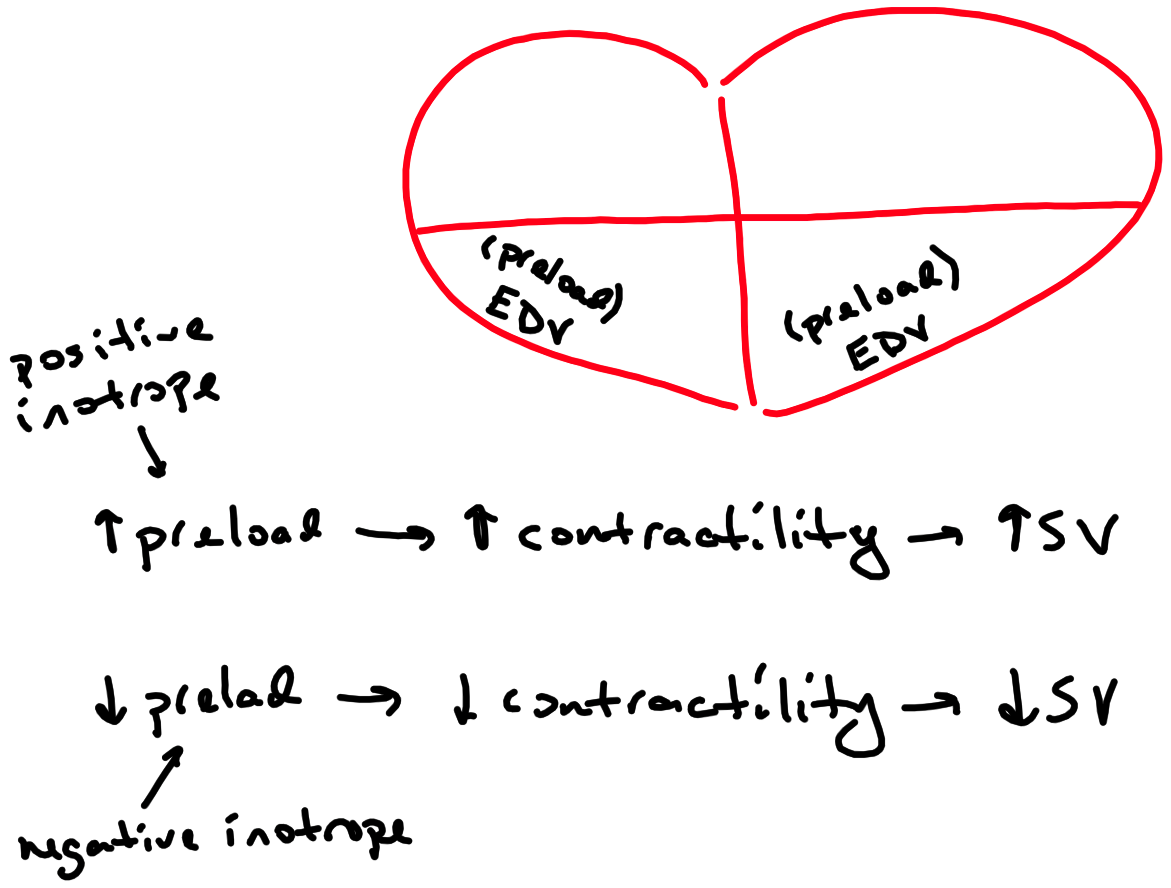 (preload)
EDV
(preload)
EDV
positive
inotrope
↑ preload → ↑ contractility → ↑ SV
↓ prelad → ↓ contractility → ↓ SV
negative inotrope